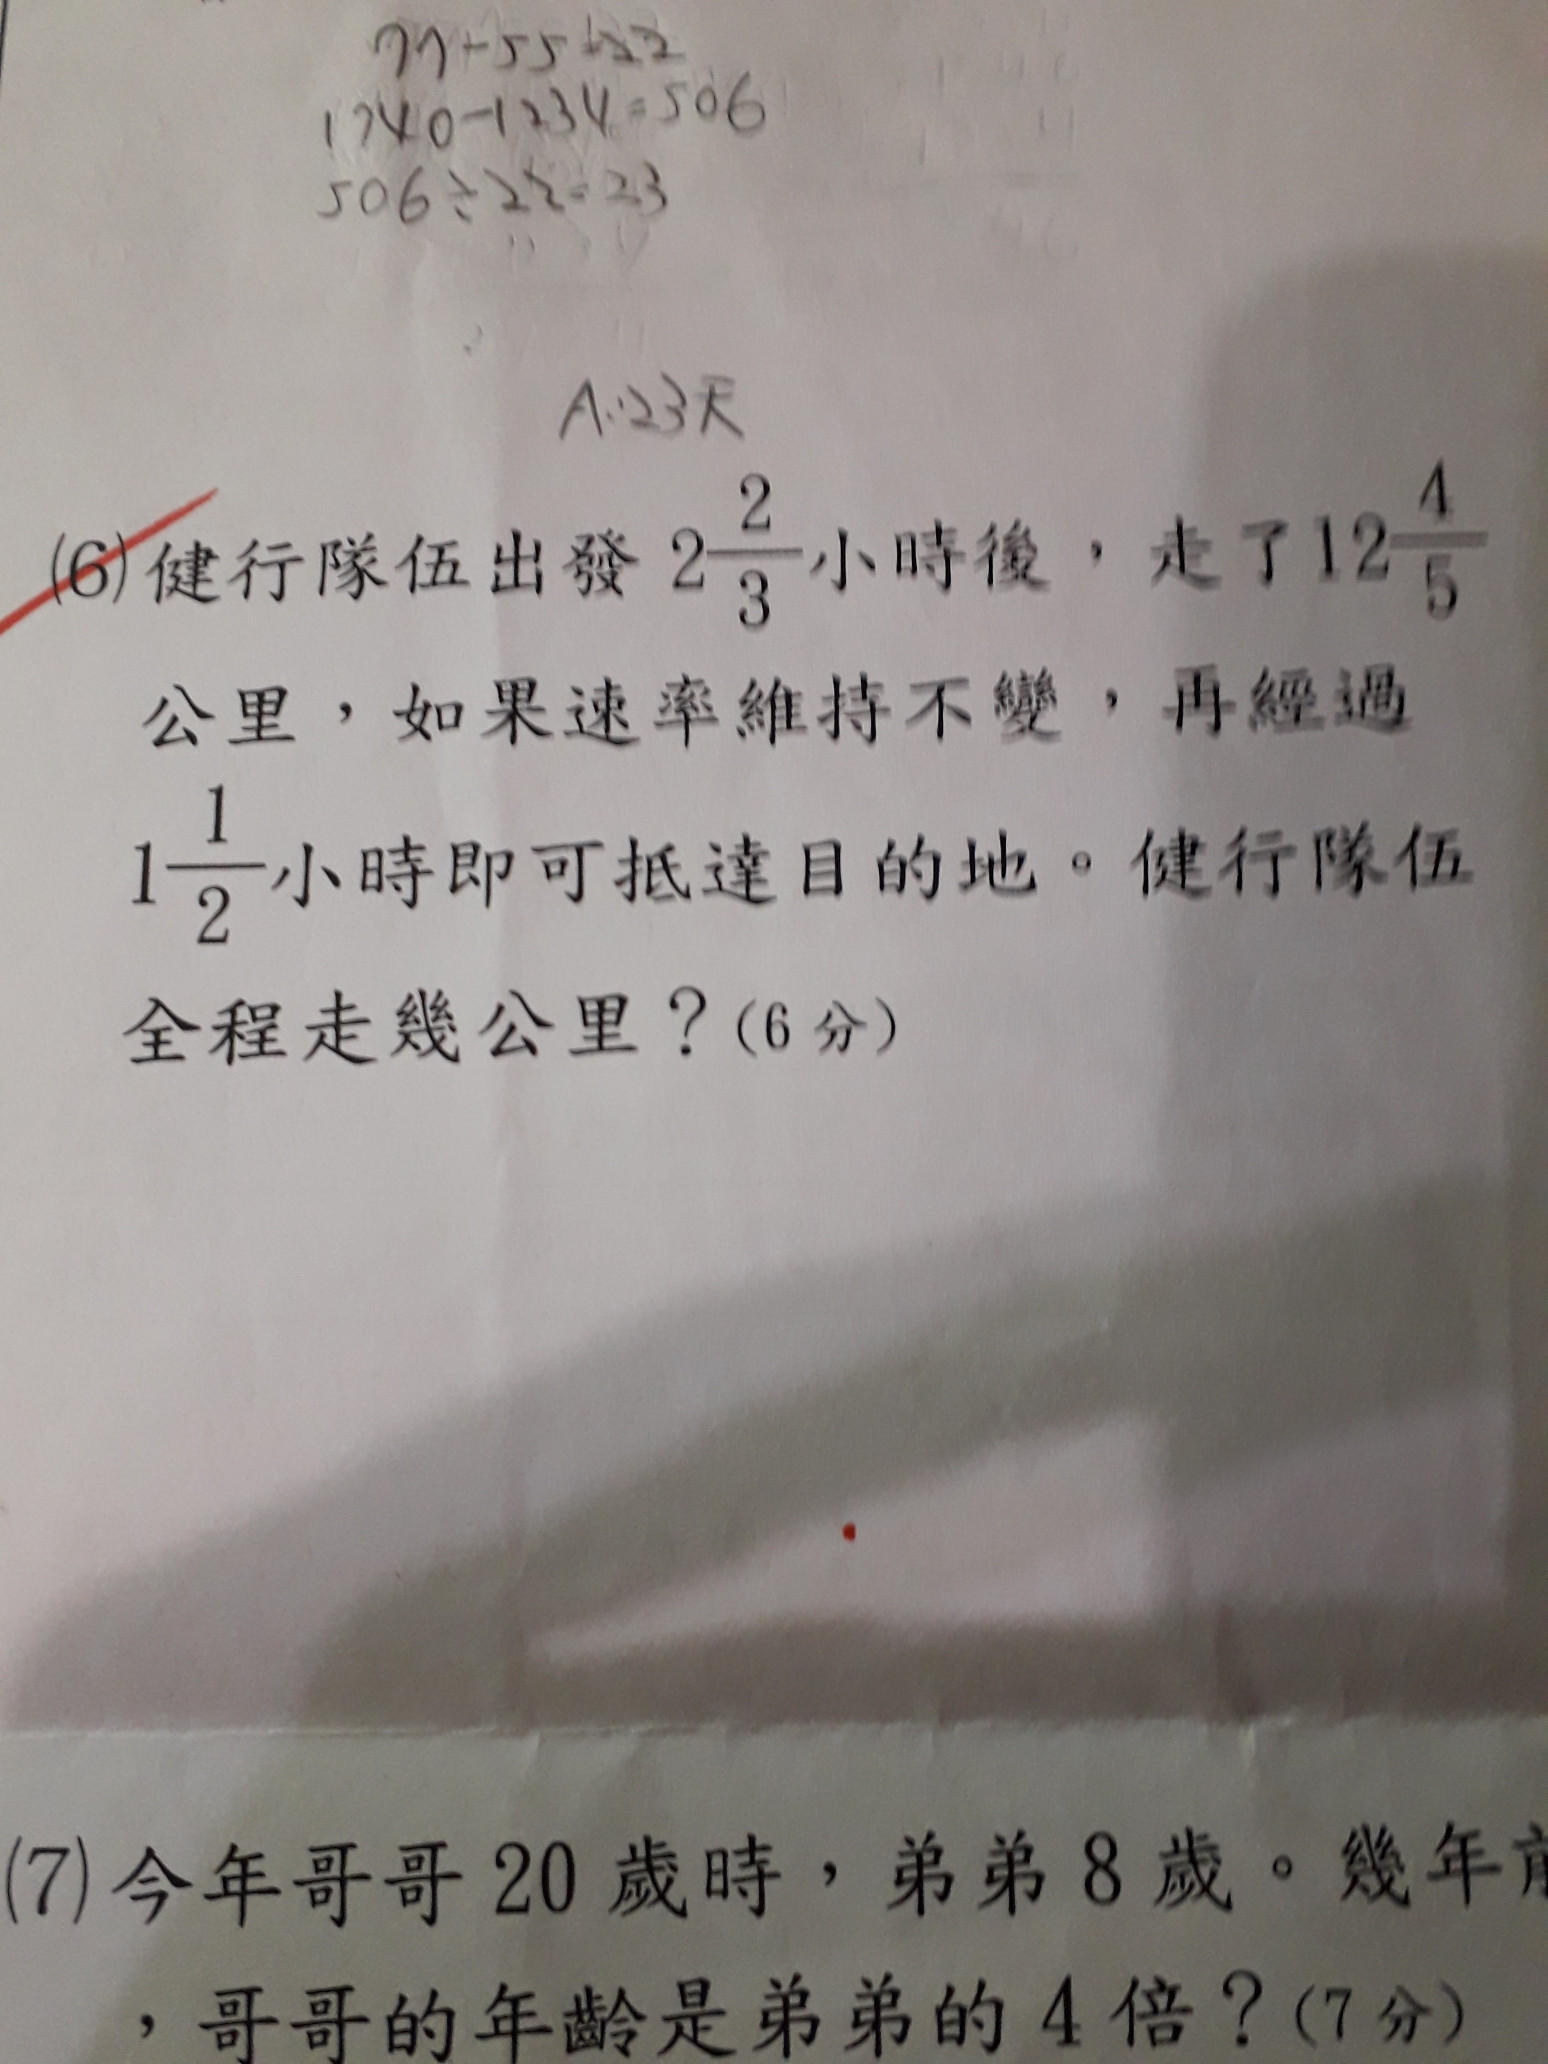 77-55=22
1740-1234=506
506÷22=23
A:23天
(6)健行隊伍出發 2 2/3 小時後，走了12 4/5
公里，如果速率維持不變，再經過
1 1/2 小時即可抵達目的地。健行隊伍
全程走幾公里？(6 分)
(7)今年哥哥 20 歲時，弟弟 8 歲。幾年前
，哥哥的年齡是弟弟的 4 倍？(7 分)